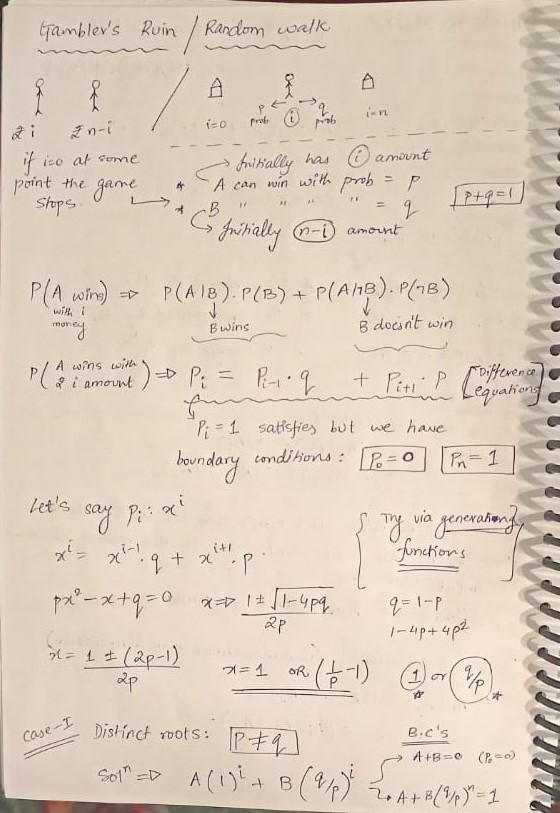 Gambler's Ruin / Random walk
₹ i ₹ n-i
i=0 p prob ← i → q prob i=n
if i=0 at some
point the game
stops.
→ Initially has (i) amount
* A can win with prob = p
* B " " " " = q
p+q=1
→ Initially (n-i) amount
P(A wins) ⇒ P(A|B).P(B) + P(A|¬B).P(¬B)
with i
money
B wins B doesn't win
P(A wins with ₹ i amount) ⇒ Pi = Pi-1 . q + Pi+1 . p [Difference equations]
Pi = 1 satisfies but we have
boundary conditions: P0 = 0 Pn = 1
Let's say Pi : x^i
x^i = x^(i-1) . q + x^(i+1) . p
{ Try via generating
functions }
px² - x + q = 0 x ⇒ (1 ± √(1-4pq)) / 2p
q = 1-p
1-4p+4p²
x = (1 ± (2p-1)) / 2p x = 1 OR (1/p - 1) (1) or (q/p)
* *
case-I Distinct roots: p ≠ q
B.C's
→ A+B=0 (P0=0)
Solⁿ ⇒ A(1)^i + B(q/p)^i
→ A + B(q/p)^n = 1